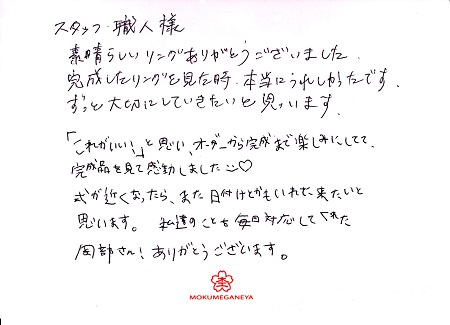 スタッフ・職人様
素晴らしいリングありがとうございました.
完成したリングを見た時、本当にうれしかったです.
ずっと大切にしていきたいと思います.
「これがいい!」と思い、オーダーから完成まで楽しみにしてて、
完成品を見て感動しました☺♡
式が近くなったら、また日付けとかもいれに来たいと
思います。 私達のことも毎回対応してくれた
岡部さん! ありがとうございます。
MOKUMEGANEYA